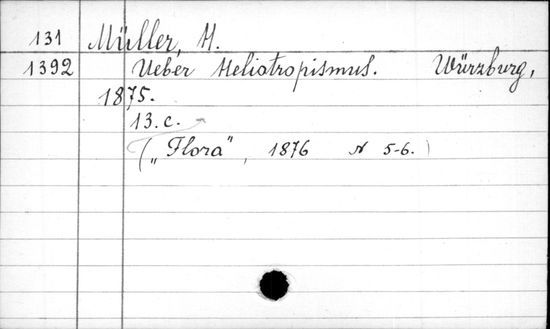 131 Müller, H.
1392 Ueber Heliotropismus. Würzburg,
1875.
13. c.
(„Flora", 1876 N 5-6.)